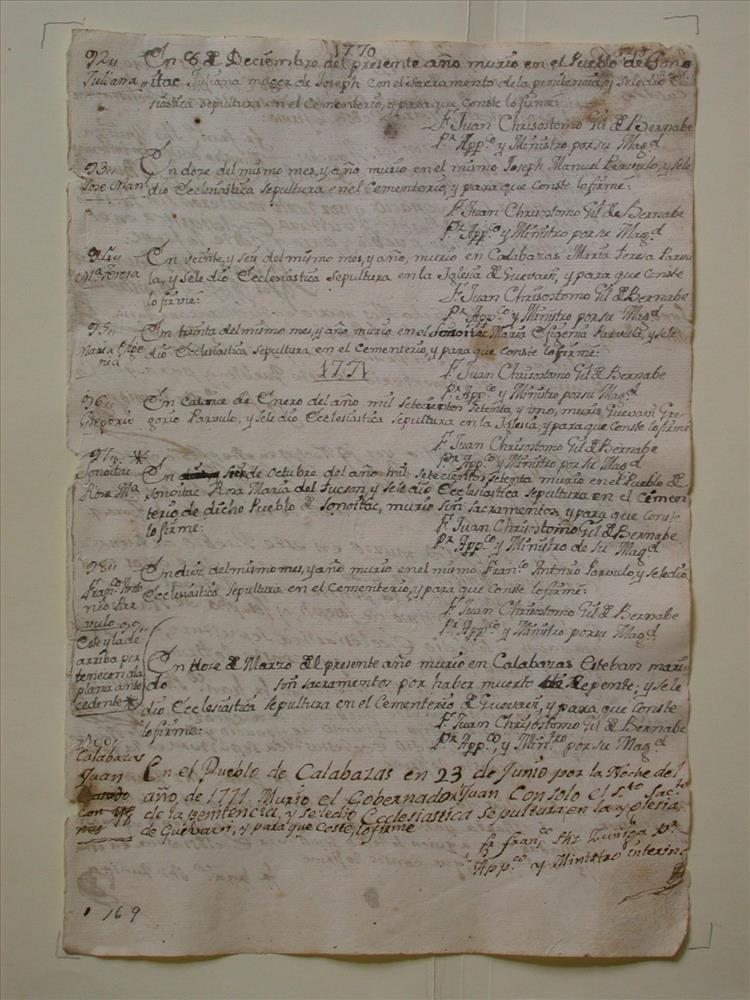 1770
92,, En 8 de Deciembre del presente año murio en el Pueblo de Sono
Juliana itac Juliana muger de Joseph con el Sacramento de la penitencia, y sele dio Ec
siastica sepultura en el Cementerio, y para que conste lo firme:
Fr. Juan Chrisostomo Gil de Bernabe
Pr. Appco y Ministro por su Magd
93,, En doze del mismo mes, y año murio en el mismo Joseph Manuel Parvulo, y sele
Jose Man dio Ecclesiastica Sepultura en el Cementerio, y para que Conste lo firmé:
Fr. Juan Chrisostomo Gil de Bernabe
Pr. Appco y Ministro por su Magd
94,, En veinte, y seis del mismo mes, y año, murio en Calabazas Maria Teresa Parvu
Ma Teresa la, y sele dio Ecclesiastica Sepultura en la Iglesia de Guevavi, y para que Conste
lo firme:
Fr. Juan Chrisostomo Gil de Bernabe
Pr. Appco y Ministro por su Magd
95,, En treinta del mismo mes, y año murio en el Sonoitac Maria Efigenia Parvula, y sele
Maria Efige dio Ecclesiastica Sepultura, en el Cementerio, y para que conste lo firmé:
nia
1771
Fr. Juan Chrisostomo Gil de Bernabe
Pr. Appco y Ministro por su Magd
96,, En Catorce de Enero del año mil setecientos setenta, y uno, murio Guevavi Gre
Gregorio gorio Parvulo, y sele dio Ecclesiastica sepultura en la Iglesia, y para que conste lo firme
Fr. Juan Chrisostomo Gil de Bernabe
Pr. Appco y Ministro por su Magd
97,, *
Sonoitac En seis de Octubre del año mil setecientos setenta murio en el Pueblo de
Rosa Ma Sonoitac Rosa Maria del Tucson, y sele dio Ecclesiastica Sepultura en el Cemen
terio de dicho Pueblo de Sonoitac, murio sin sacramentos, y para que Conste
lo firme:
Fr. Juan Chrisostomo Gil de Bernabe
Pr. Appco y Ministro de su Magd
98,, En diez del mismo mes, y año murio en el mismo Franco Antonio Parvulo, y sele dio
Franco Anto Ecclesiastica sepultura en el Cementerio, y para que Conste lo firmé:
nio Par
vulo
Fr. Juan Chrisostomo Gil de Bernabe
Pr. Appco y Ministro por su Magd
Este y la de
arriba per
tenecen a la
plana ante
cedente *
En doze de Marzo del presente año murio en Calabazas Esteban mari
do sin sacramentos por haber muerto de Repente; y sele
dio Ecclesiastica sepultura en el Cementerio de Guevavi, y para que Conste
lo firme:
Fr. Juan Chrisostomo Gil de Bernabe
Pr. Appco, y Mintro por su Magd
Calabazas
Juan En el Pueblo de Calabazas en 23 de Junio por la Noche del
año, de 1771 Murio el Gobernador Juan Con solo el Sto Sacto
de la Penitencia, y sele dio Ecclesiastica Sepultura en la yglesia
de Guevavi, y para que Coste, lo firme
Fr. Franco Shz Zuñiga Pr.
Appco y Ministro interino
169